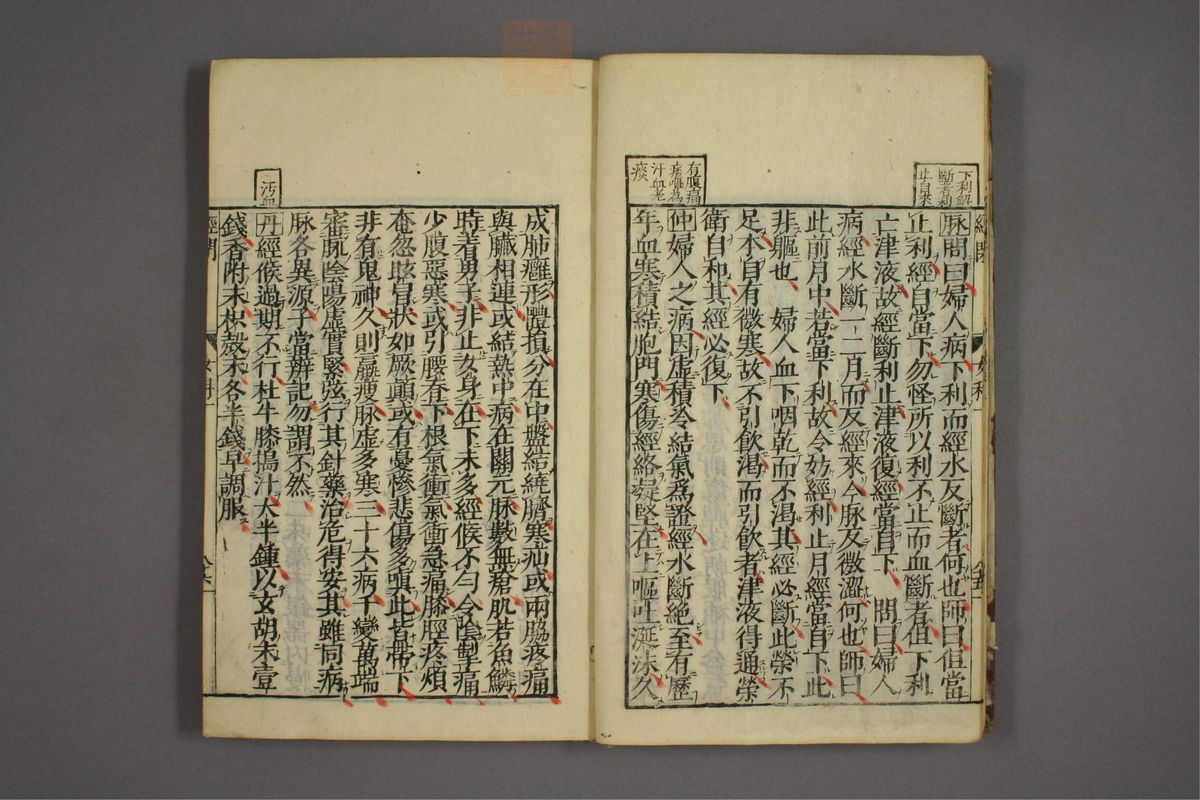 下利斷
止自來
脉問曰婦人病下利而經水反斷者何也師曰但當
止利經自當下勿怪所以利不止而血斷者但下利
亡津液故經斷利止津液復經當自下　問曰婦人
病經水斷一二月而反經來今脉反微澀何也師曰
此前月中若當下利故令妨經利止月經當自下此
非軀也　婦人血下咽乾而不渴其經必斷此榮不
足本自有微寒故不引飲渴而引飲者津液得通榮
衛自和其經必復下
有腹痛
汗血老
痰
仲婦人之病因虛積冷結氣為證經水斷絕至有歷
年血寒積結胞門寒傷經絡凝堅在上嘔吐涎沫久
成肺癰形體損分在中盤結繞臍寒疝或兩脇疼痛
與臟相連或結熱中病在關元脉數無瘡肌若魚鱗
時著男子非止女身在下未多經候不勻令陰掣痛
少腹惡寒或引腰脊下根氣衝氣衝急痛膝脛疼煩
奄忽眩冒狀如厥顛或有憂慘悲傷多嗔此皆帶下
非有鬼神久則羸瘦脉虛多寒三十六病千變萬端
審脉陰陽虛實緊弦行其針藥治危得安其雖同病
脉各異源子當辨記勿謂不然
汚血
丹經候過期不行杜牛膝搗汁大半鍾以玄胡末壹
錢香附末枳殼末各半錢早調服